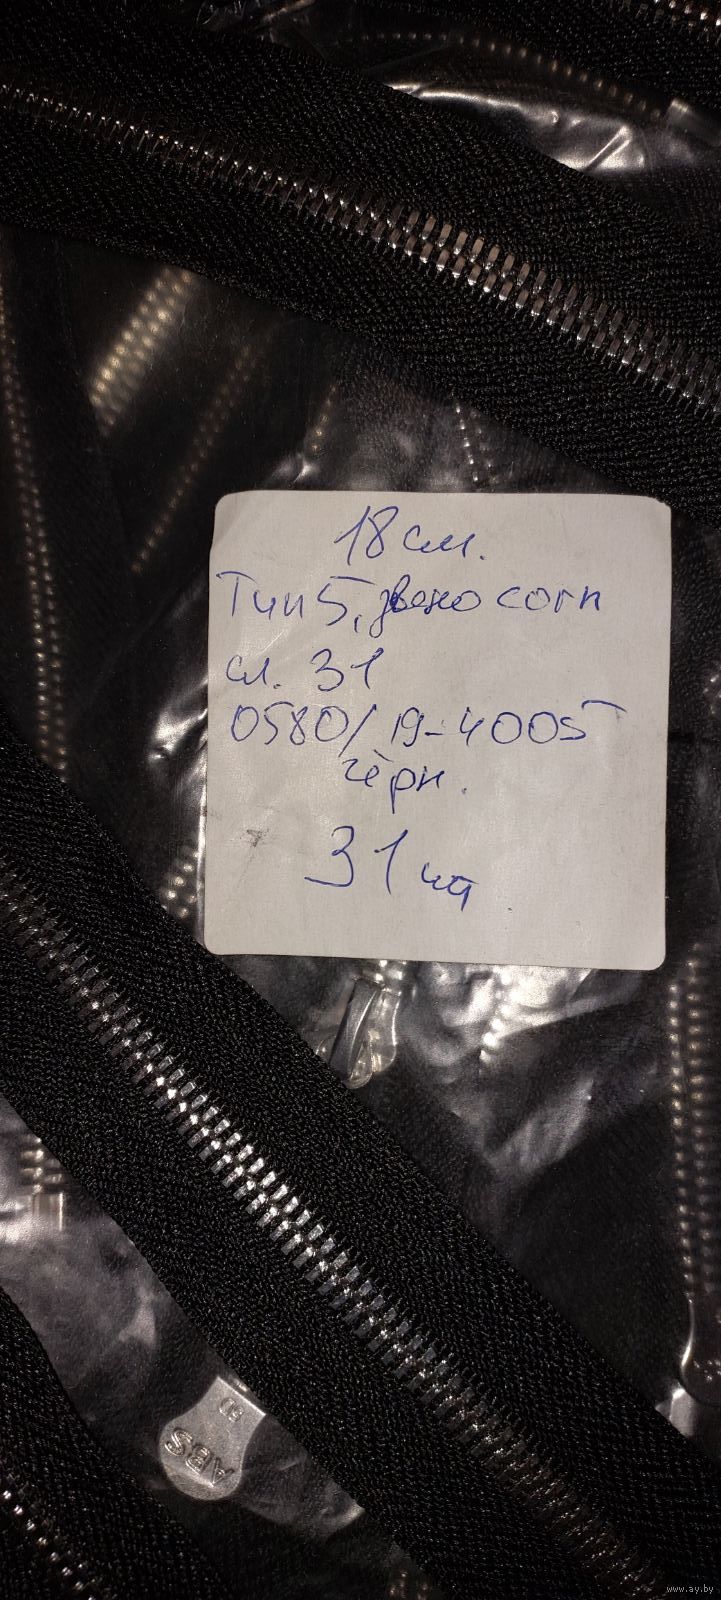 18 см.
Тип 5, звено corn
сл. 31
0580/19-4005
чёрн.
31 шт
ABS
www.ay.by